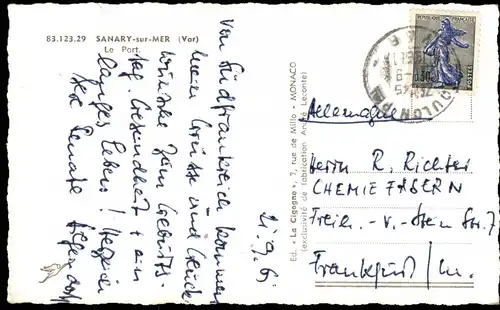 83.123.29 SANARY-sur-MER (Var)
Le Port.
Von Südfrankreich kommen
meine Grüsse und Glück-
wünsche zum Geburts-
tag. Gesundheit + ein
langes Leben! Herzlich
Renate
21.9.65
Ed. « La Cigogne », 7, rue de Millo - MONACO
(exclusivité de fabrication André Leconte)
REPUBLIQUE FRANÇAISE
0,30
POSTES
TOULON
Allemagne
Herrn R. Richter
CHEMIEFASERN
Freih.-v.-Stein Str. 7
Frankfurt / M.